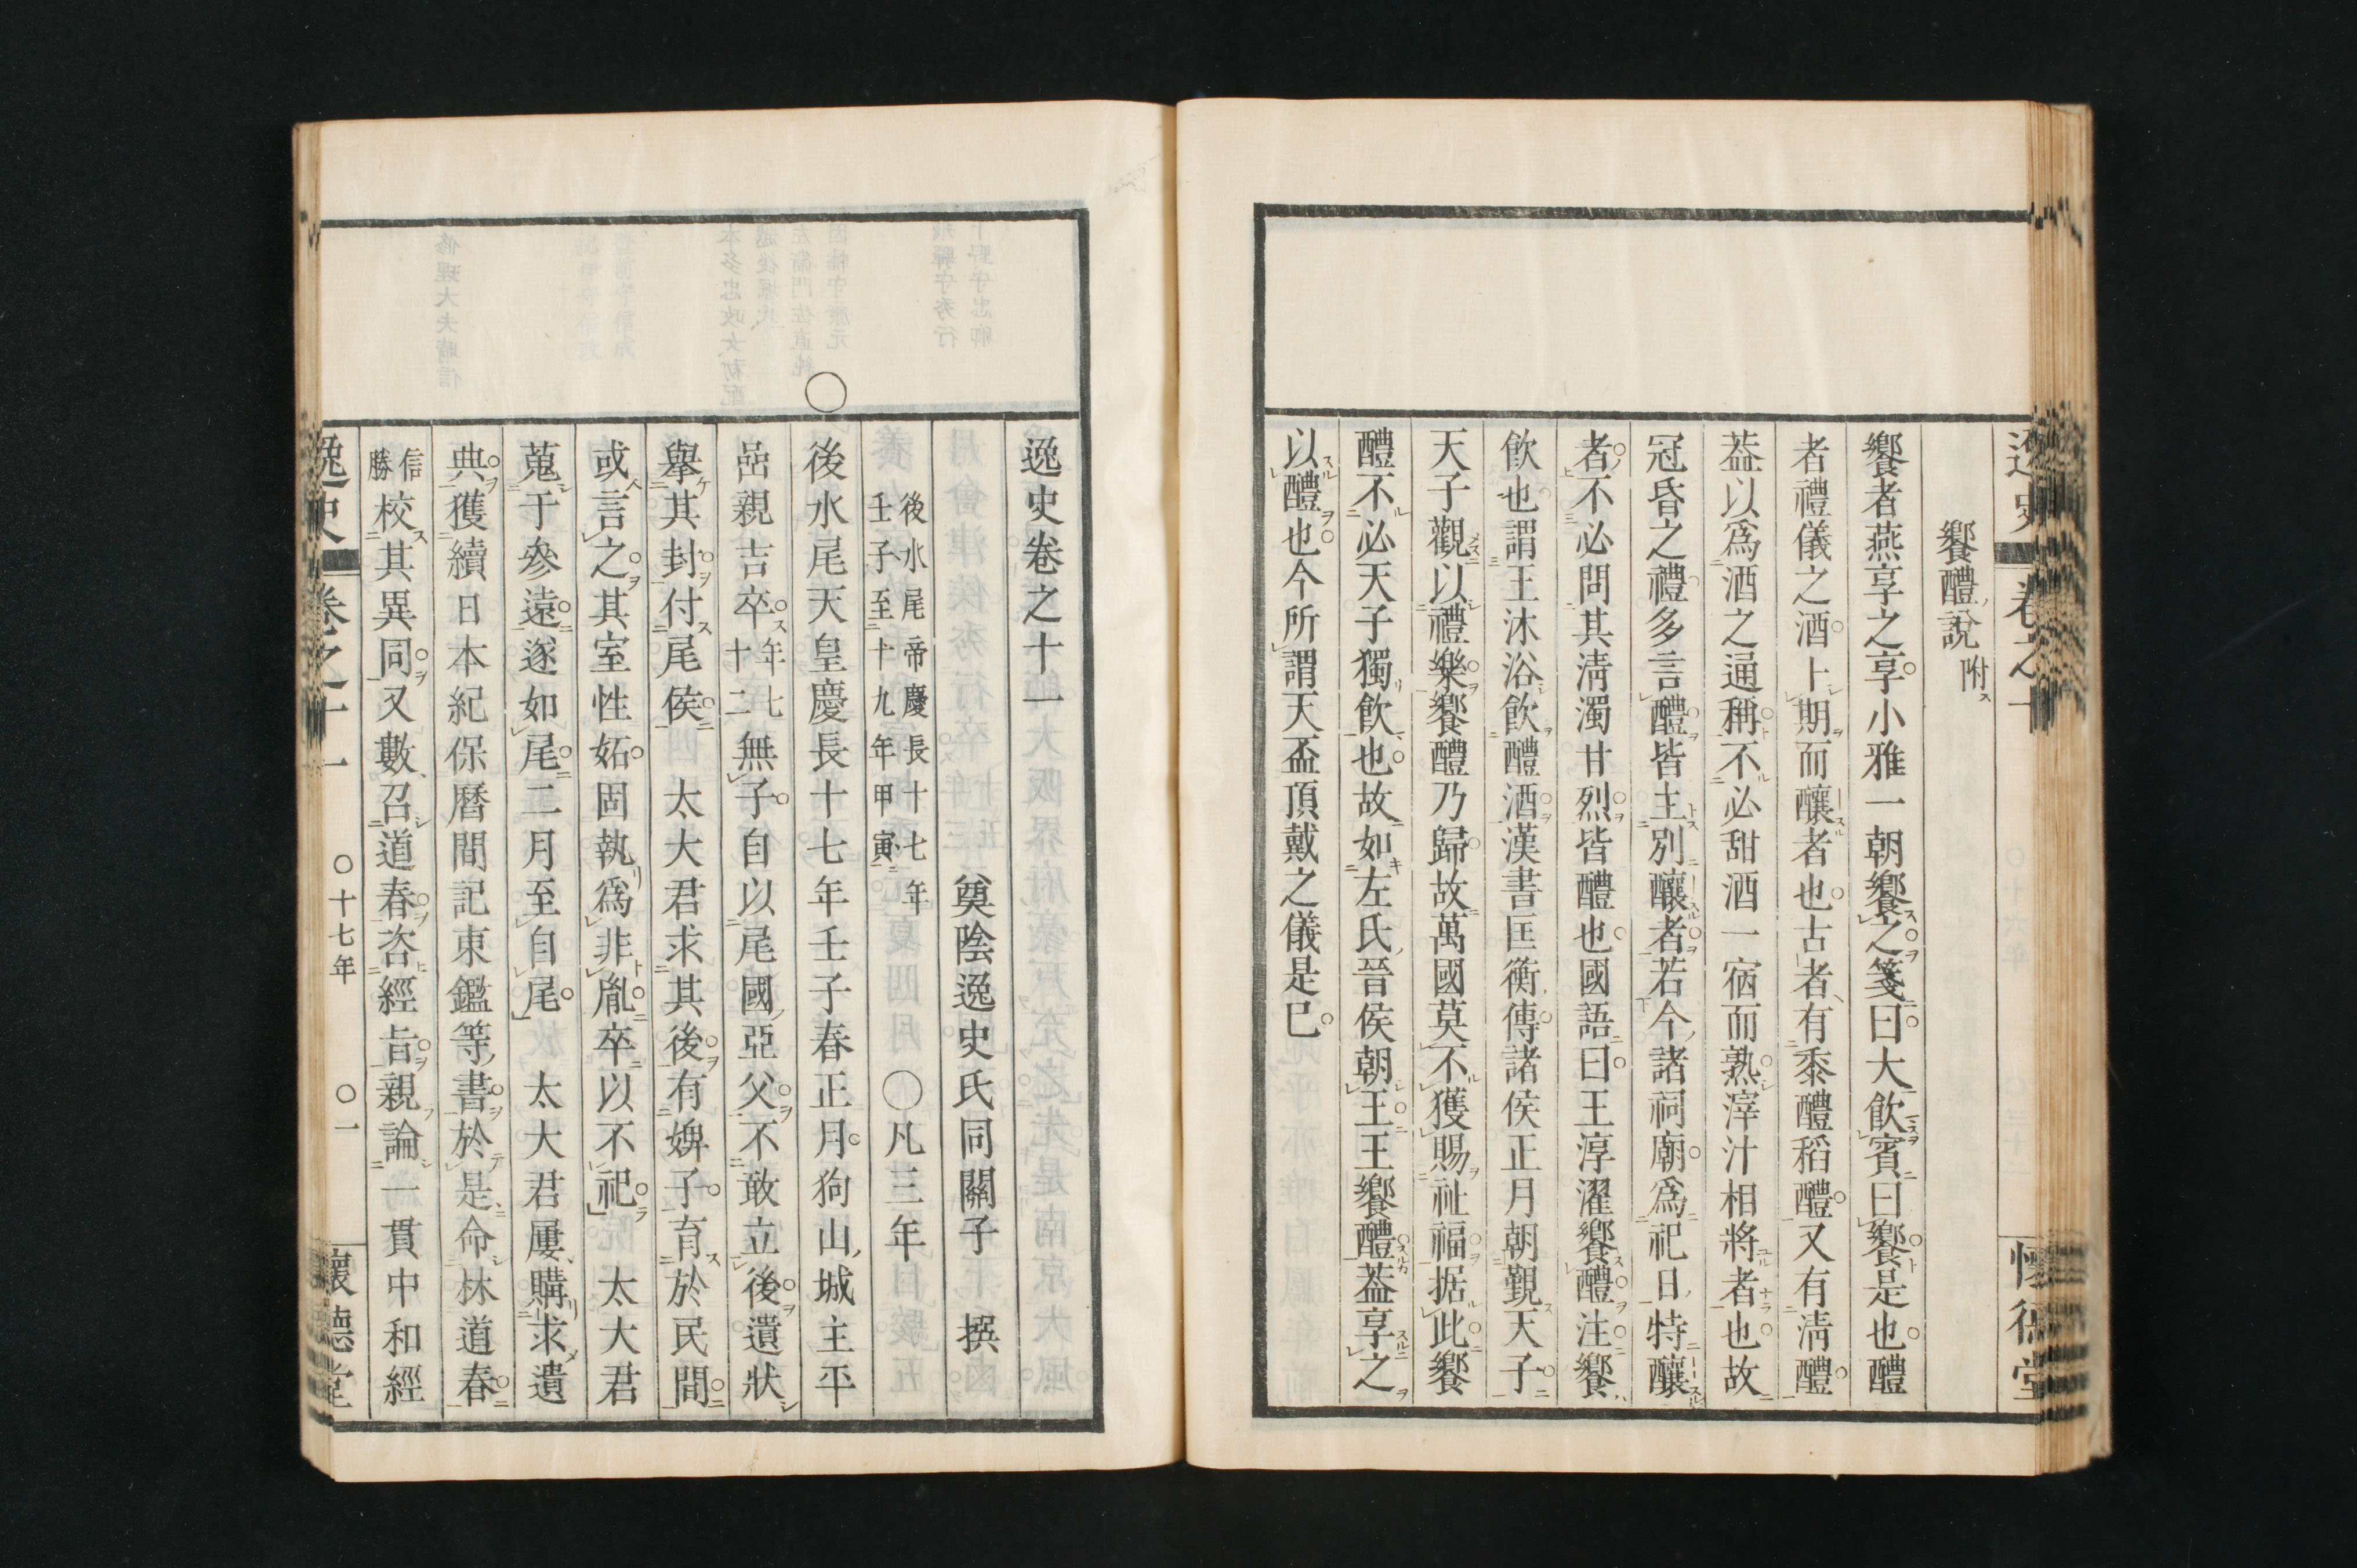 饗醴說附
饗者燕享之享小雅一朝饗之箋曰大飮賓曰饗是也醴
者禮儀之酒上期而釀者也古者有黍醴稻醴又有淸醴
葢以爲酒之通稱不必甜酒一宿而熟滓汁相將者也故
冠昏之禮多言醴皆主別釀者若今諸祠廟爲祀日特釀
者不必問其淸濁甘烈皆醴也國語曰王淳濯饗醴注饗
飮也謂王沐浴飮醴酒漢書匡衡傳諸侯正月朝覲天子
天子觀以禮樂饗醴乃歸故萬國莫不獲賜祉福据此饗
醴不必天子獨飮也故如左氏晉侯朝王王饗醴葢享之
以醴也今所謂天盃頂戴之儀是已
逸史卷之十一
奠陰逸史氏同關子　撰
後水尾帝慶長十七年
壬子至十九年甲寅
〇凡三年
後水尾天皇慶長十七年壬子春正月狗山城主平
嵒親吉卒年七十二無子自以尾國亞父不敢立後遺狀
擧其封付尾侯　太大君求其後有婢子育於民間
或言之其室性妬固執爲非胤卒以不祀　太大君
蒐于參遠遂如尾二月至自尾　太大君屢購求遺
典獲續日本紀保曆間記東鑑等書於是命林道春
信勝校其異同又數召道春咨經旨親論一貫中和經
逸史　卷之十一　〇十七年　〇一　懷德堂